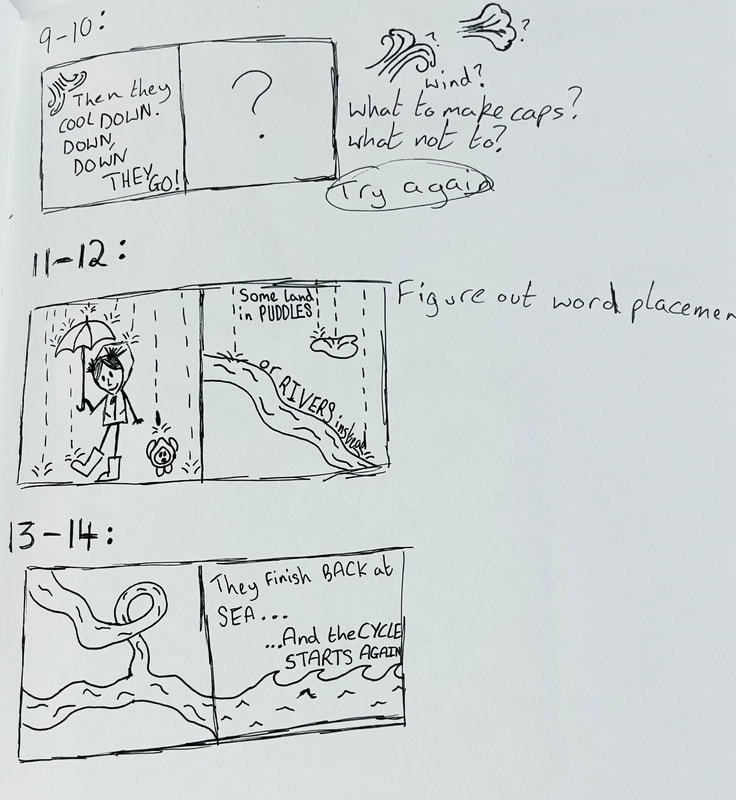 9-10:
Then they
COOL DOWN.
DOWN,
DOWN
THEY GO!
?
?
?
wind?
what to make caps?
what not to?
Try again
11-12:
Some land
in PUDDLES
or RIVERS instead
Figure out word placemen
13-14:
They Finish BACK at
SEA...
...And the CYCLE
STARTS AGAIN